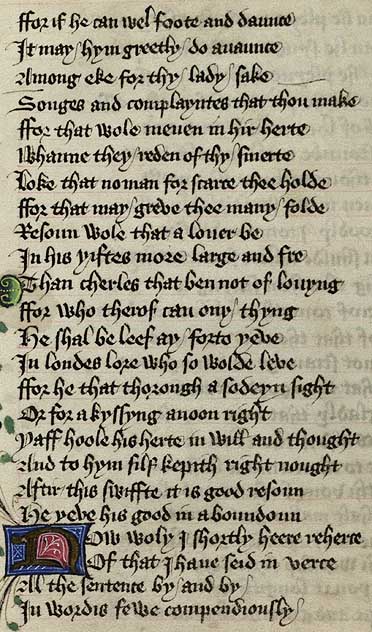 ffor if he can wel foote and daunce
It may hym greetly do auaunce
Among eke for thy lady sake
Songes and complayntes that thou make
ffor that wole meuen in hir herte
Whanne they reden of thy smerte
Loke that no man for scarce thee holde
ffor that may greve thee many folde
Resoun wole that a louer be
In his yiftes more large and fre
Than cherles that ben not of louyng
ffor who therof can ony thyng
He shal be leef ay forto yeve
In londes lore who so wolde leve
ffor he that thorough a sodeyn sight
Or for a kyssyng anoon right
Yaff hoole his herte in will and thought
And to hym silf kepith right nought
Aftir this swiffte it is good resoun
He yeve his good in aboundoun
Now woly I shortly heere reherce
Of that I haue seid in verce
Al the sentence by and by
In wordis fewe compendiously